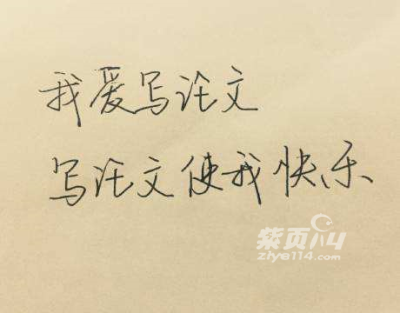 我爱写论文
写论文使我快乐
紫页114
ziye114.com